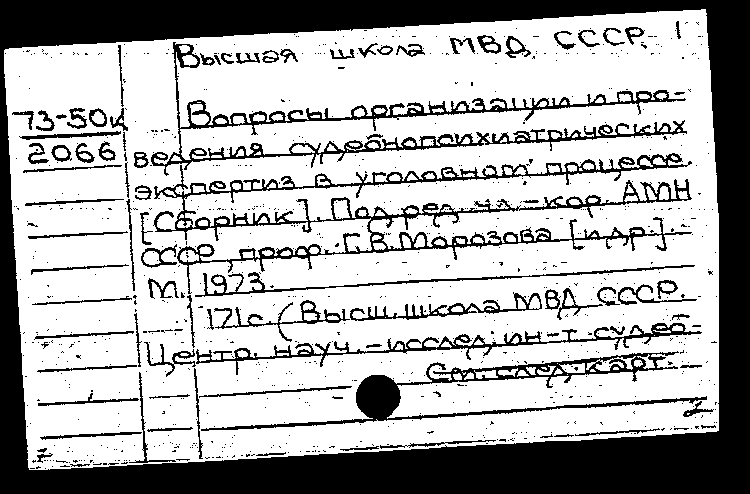 Высшая школа МВД СССР. 1
73-50к
2066
Вопросы организации и про-
ведения судебнопсихиатрических
экспертиз в уголовном процессе.
[Сборник]. Под ред. чл.-кор. АМН
СССР, проф. Г.В.Морозова [и др.].
М., 1973.
171с. (Высш. школа МВД СССР.
Центр. науч.-исслед. ин-т судеб-
См. след. карт.
2